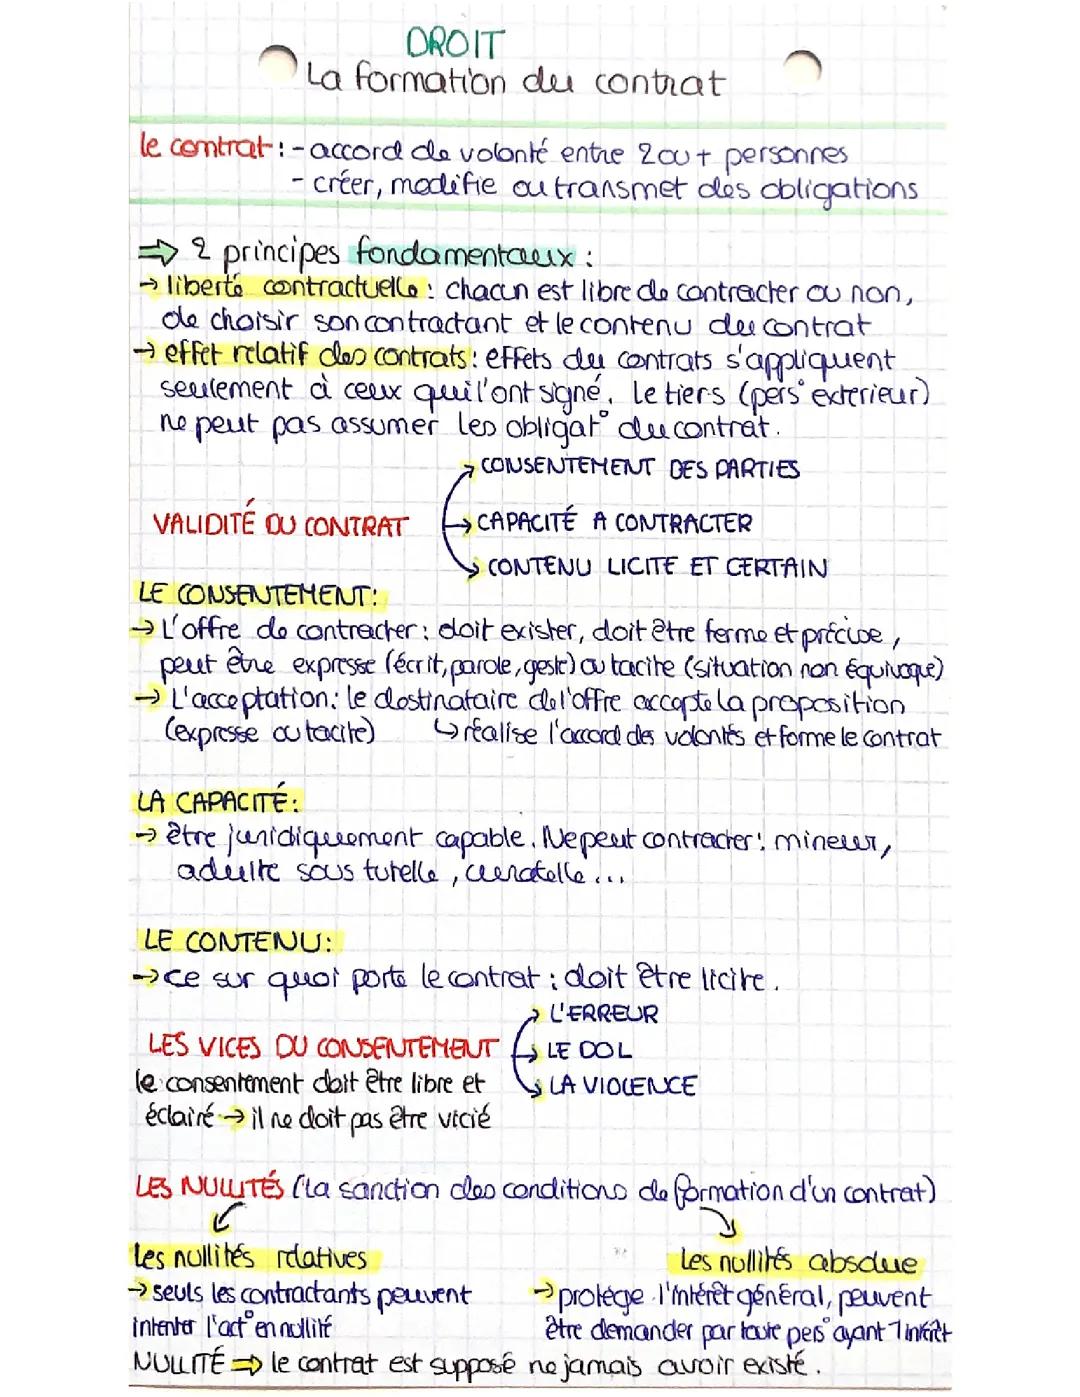 DROIT
La formation du contrat
le contrat : - accord de volonté entre 2 ou + personnes
- créer, modifie ou transmet des obligations
⇒ 2 principes fondamentaux :
→ liberté contractuelle : chacun est libre de contracter ou non,
de choisir son contractant et le contenu du contrat
→ effet relatif des contrats : effets du contrats s'appliquent
seulement à ceux qui l'ont signé. Le tiers (pers° exterieur)
ne peut pas assumer les obligat° du contrat.
→ CONSENTEMENT DES PARTIES
VALIDITÉ DU CONTRAT → CAPACITÉ A CONTRACTER
→ CONTENU LICITE ET CERTAIN
LE CONSENTEMENT :
→ L'offre de contracter : doit exister, doit être ferme et précise,
peut être expresse (écrit, parole, geste) ou tacite (situation non équivoque)
→ L'acceptation : le destinataire de l'offre accepte la proposition
(expresse ou tacite) ↳ réalise l'accord des volontés et forme le contrat
LA CAPACITÉ :
→ être juridiquement capable. Ne peut contracter : mineur,
adulte sous tutelle, curatelle ...
LE CONTENU :
→ ce sur quoi porte le contrat : doit être licite.
→ L'ERREUR
LES VICES DU CONSENTEMENT → LE DOL
le consentement doit être libre et → LA VIOLENCE
éclairé → il ne doit pas être vicié
LES NULLITÉS (la sanction des conditions de formation d'un contrat)
Les nullités relatives
→ seuls les contractants peuvent
intenter l'act° en nullité
Les nullités absolue
→ protège l'intérêt général, peuvent
être demander par toute pers° ayant 1 intérêt
NULLITÉ ⇒ le contrat est supposé ne jamais avoir existé.